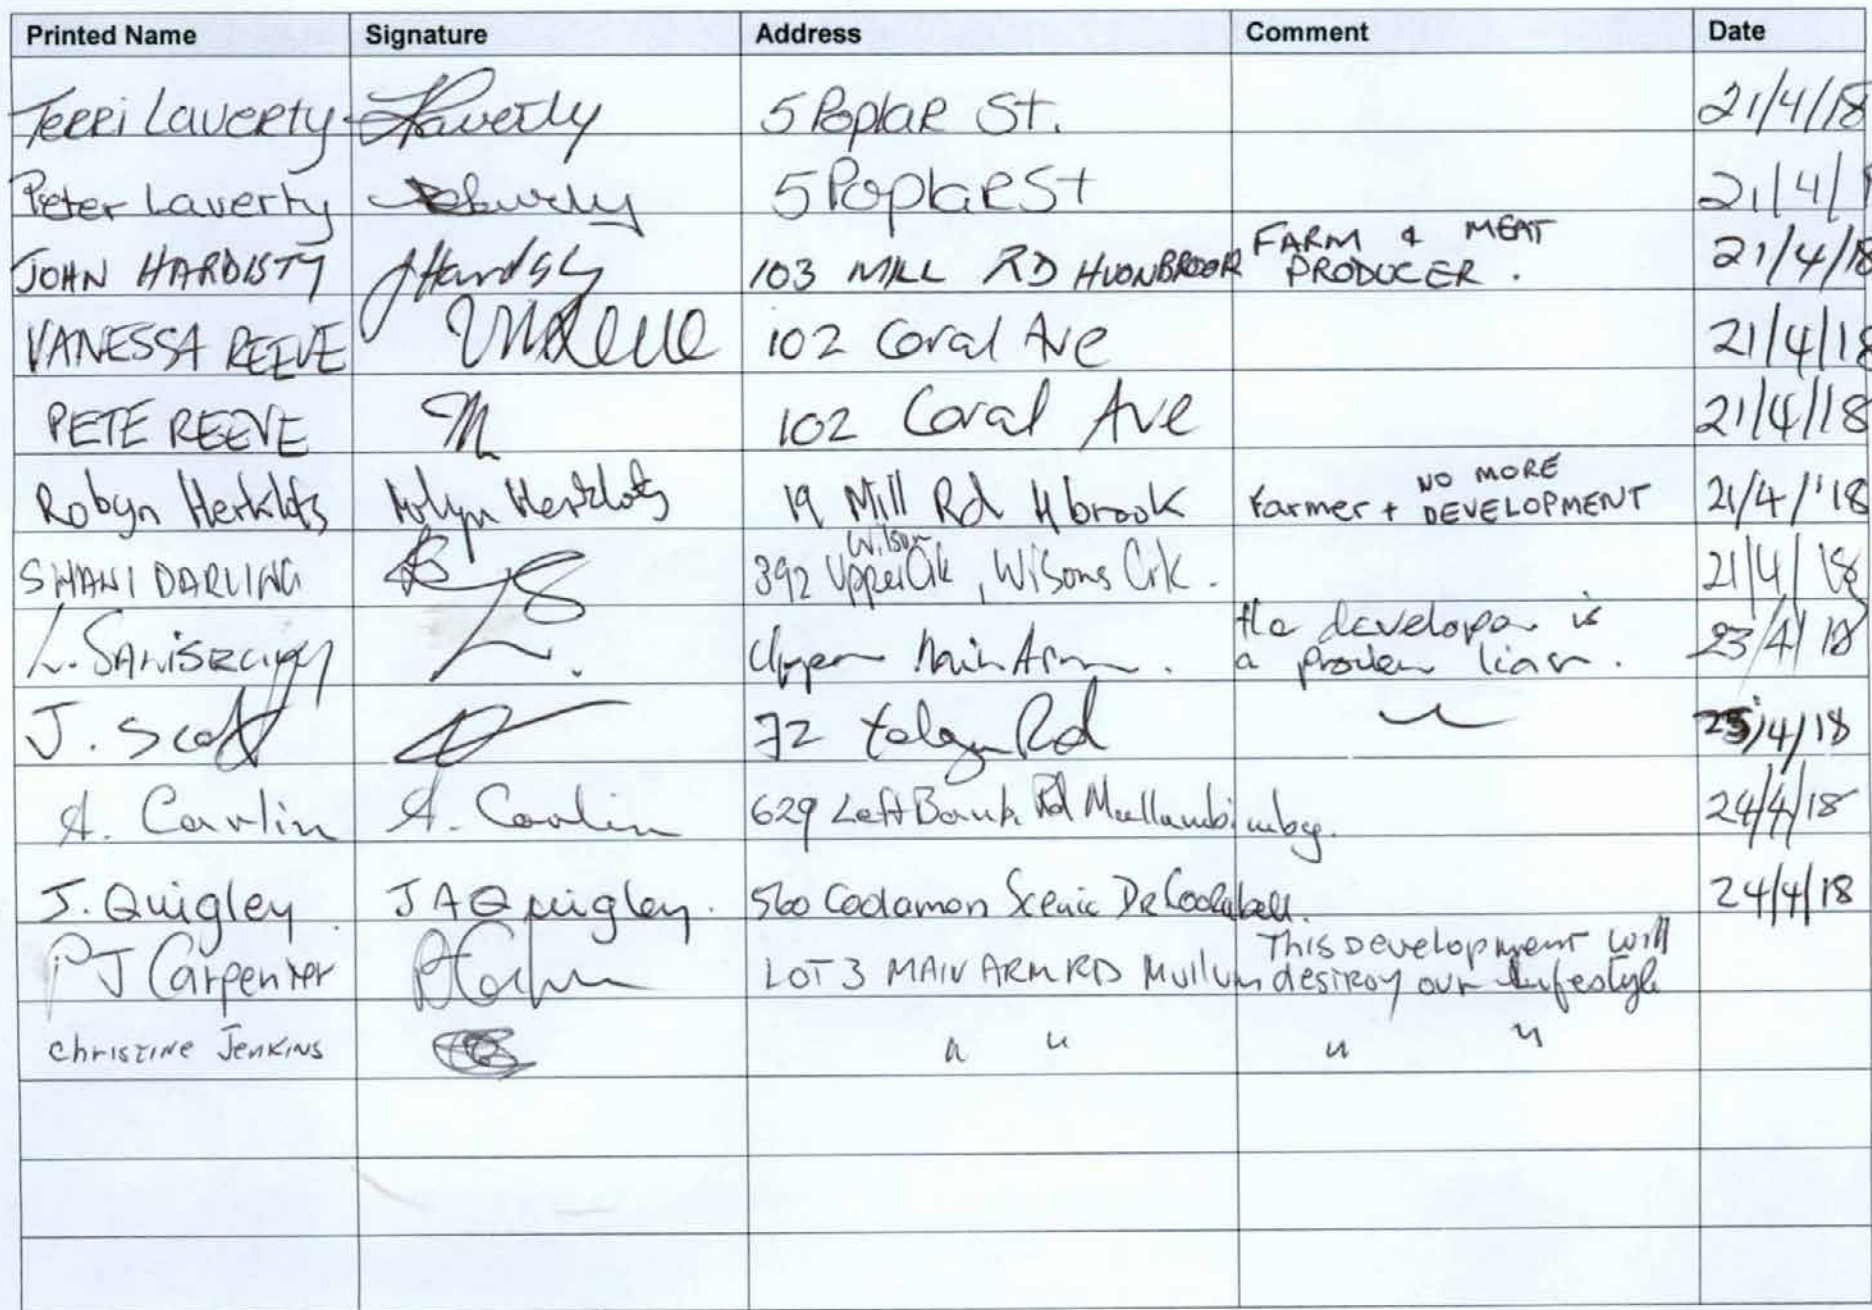 Printed Name Signature Address Comment Date
Terri Laverty Laverty 5 Poplar St. 21/4/18
Peter Laverty 5 Poplar St 21/4/1
JOHN HARDISTY 103 MILL RD HUONBROOK FARM & MEAT
PRODUCER. 21/4/18
VANESSA REEVE VMReeve 102 Coral Ave 21/4/18
PETE REEVE 102 Coral Ave 21/4/18
Robyn Herklots Robyn Herklots 19 Mill Rd Hbrook Farmer + NO MORE
DEVELOPMENT 21/4/'18
SHANI DARLING 392 Upper Wilson Crk, Wilsons Crk. 21/4/18
L. Upper Main Arm. the developer is
a proven liar. 23/4/18
J. Scott 72 Rd 4/18
A. Carlin A. Carlin 629 Left Bank Rd Mullumbimby. 24/4/18
J. Quigley. J A Quigley. 560 Coolamon Scenic Dr 24/4/18
PJ Carpenter LOT 3 MAIN ARM RD Mullum This Development will
destroy our lifestyle
Christine Jenkins " " " "